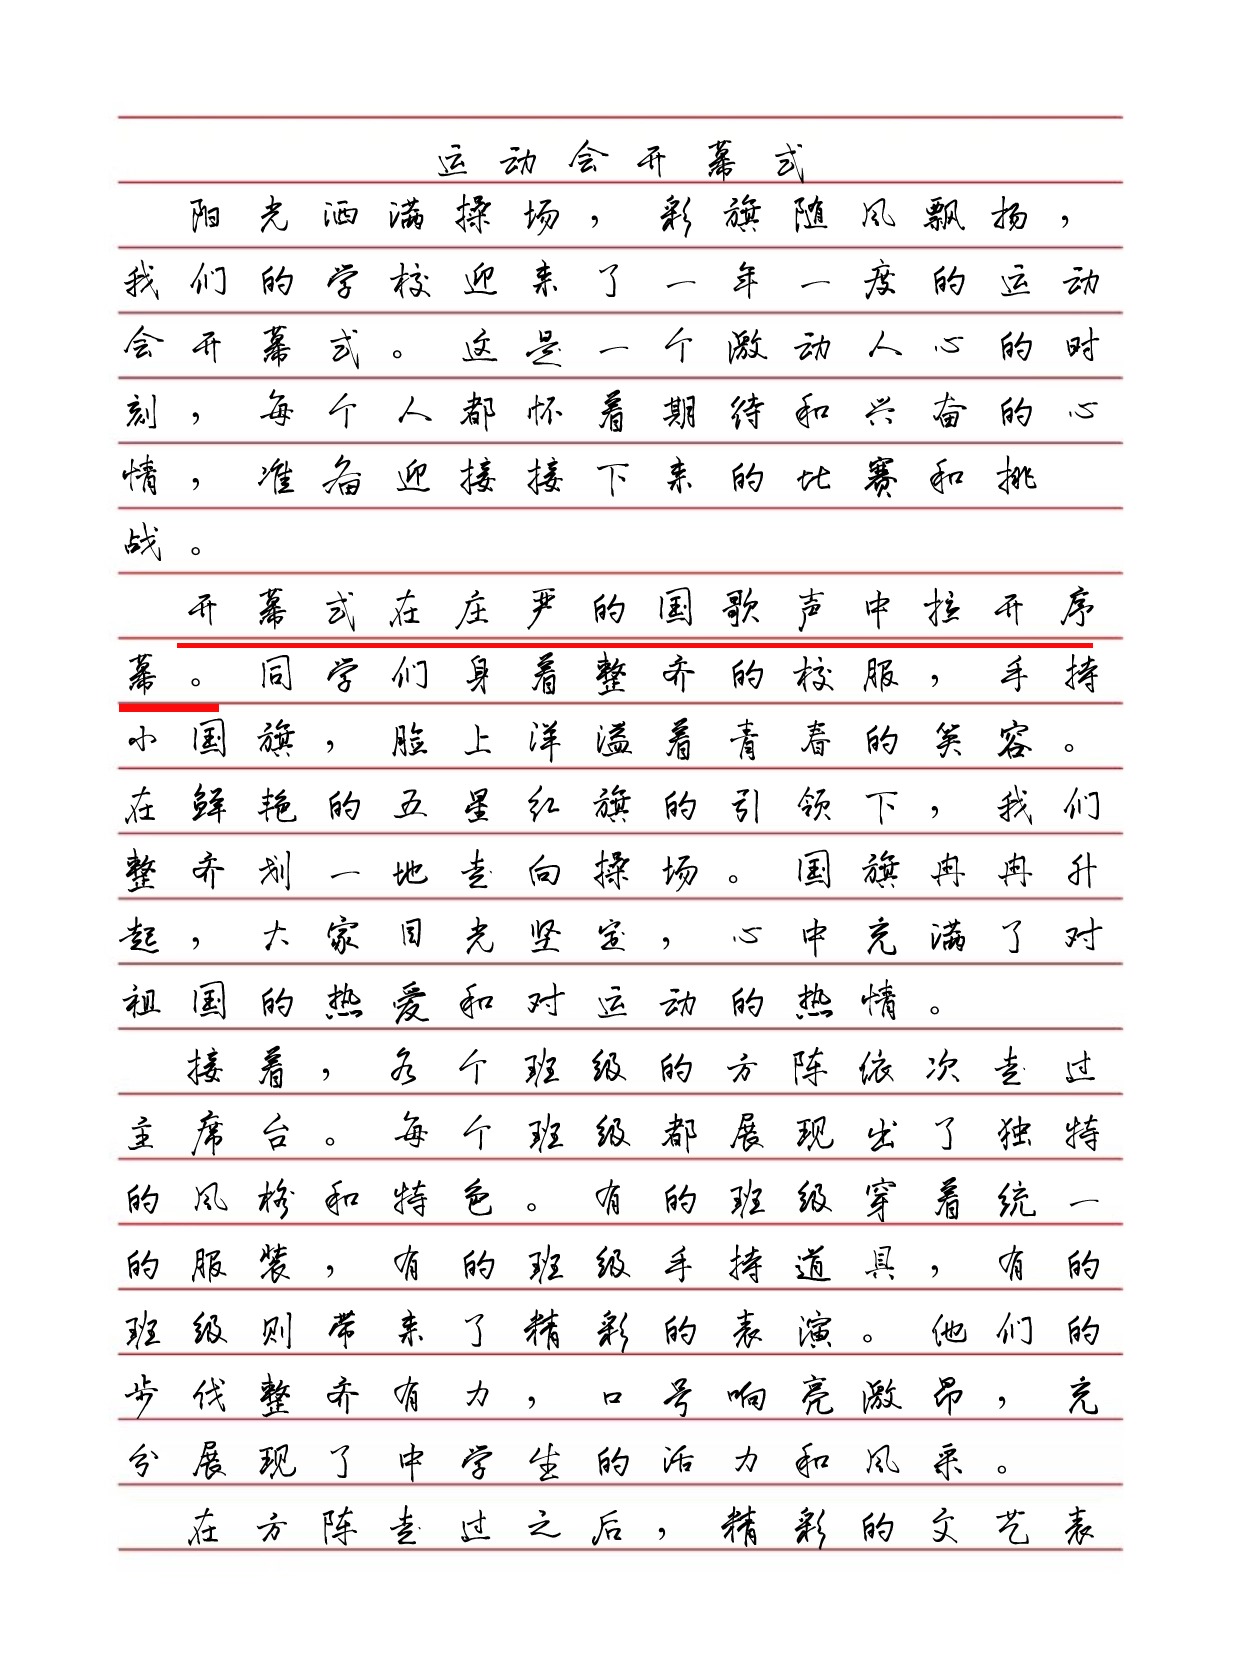 运动会开幕式
阳光洒满操场，彩旗随风飘扬，
我们的学校迎来了一年一度的运动
会开幕式。这是一个激动人心的时
刻，每个人都怀着期待和兴奋的心
情，准备迎接接下来的比赛和挑
战。
开幕式在庄严的国歌声中拉开序
幕。同学们身着整齐的校服，手持
小国旗，脸上洋溢着青春的笑容。
在鲜艳的五星红旗的引领下，我们
整齐划一地走向操场。国旗冉冉升
起，大家目光坚定，心中充满了对
祖国的热爱和对运动的热情。
接着，各个班级的方阵依次走过
主席台。每个班级都展现出了独特
的风格和特色。有的班级穿着统一
的服装，有的班级手持道具，有的
班级则带来了精彩的表演。他们的
步伐整齐有力，口号响亮激昂，充
分展现了中学生的活力和风采。
在方阵走过之后，精彩的文艺表